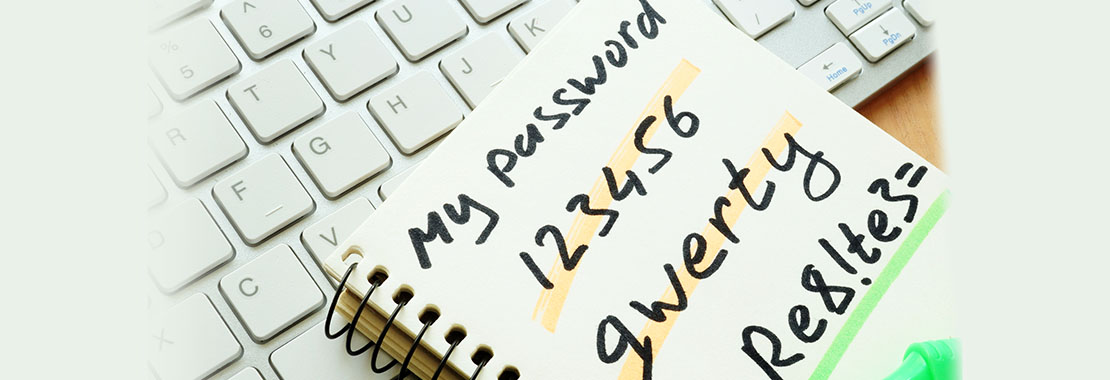 My password
123456
qwerty
Re8!te3=
^
6
%
5
Y
U
K
T
H
J
R
G
F
V
D
C
X
PgUp
PgDn
Home